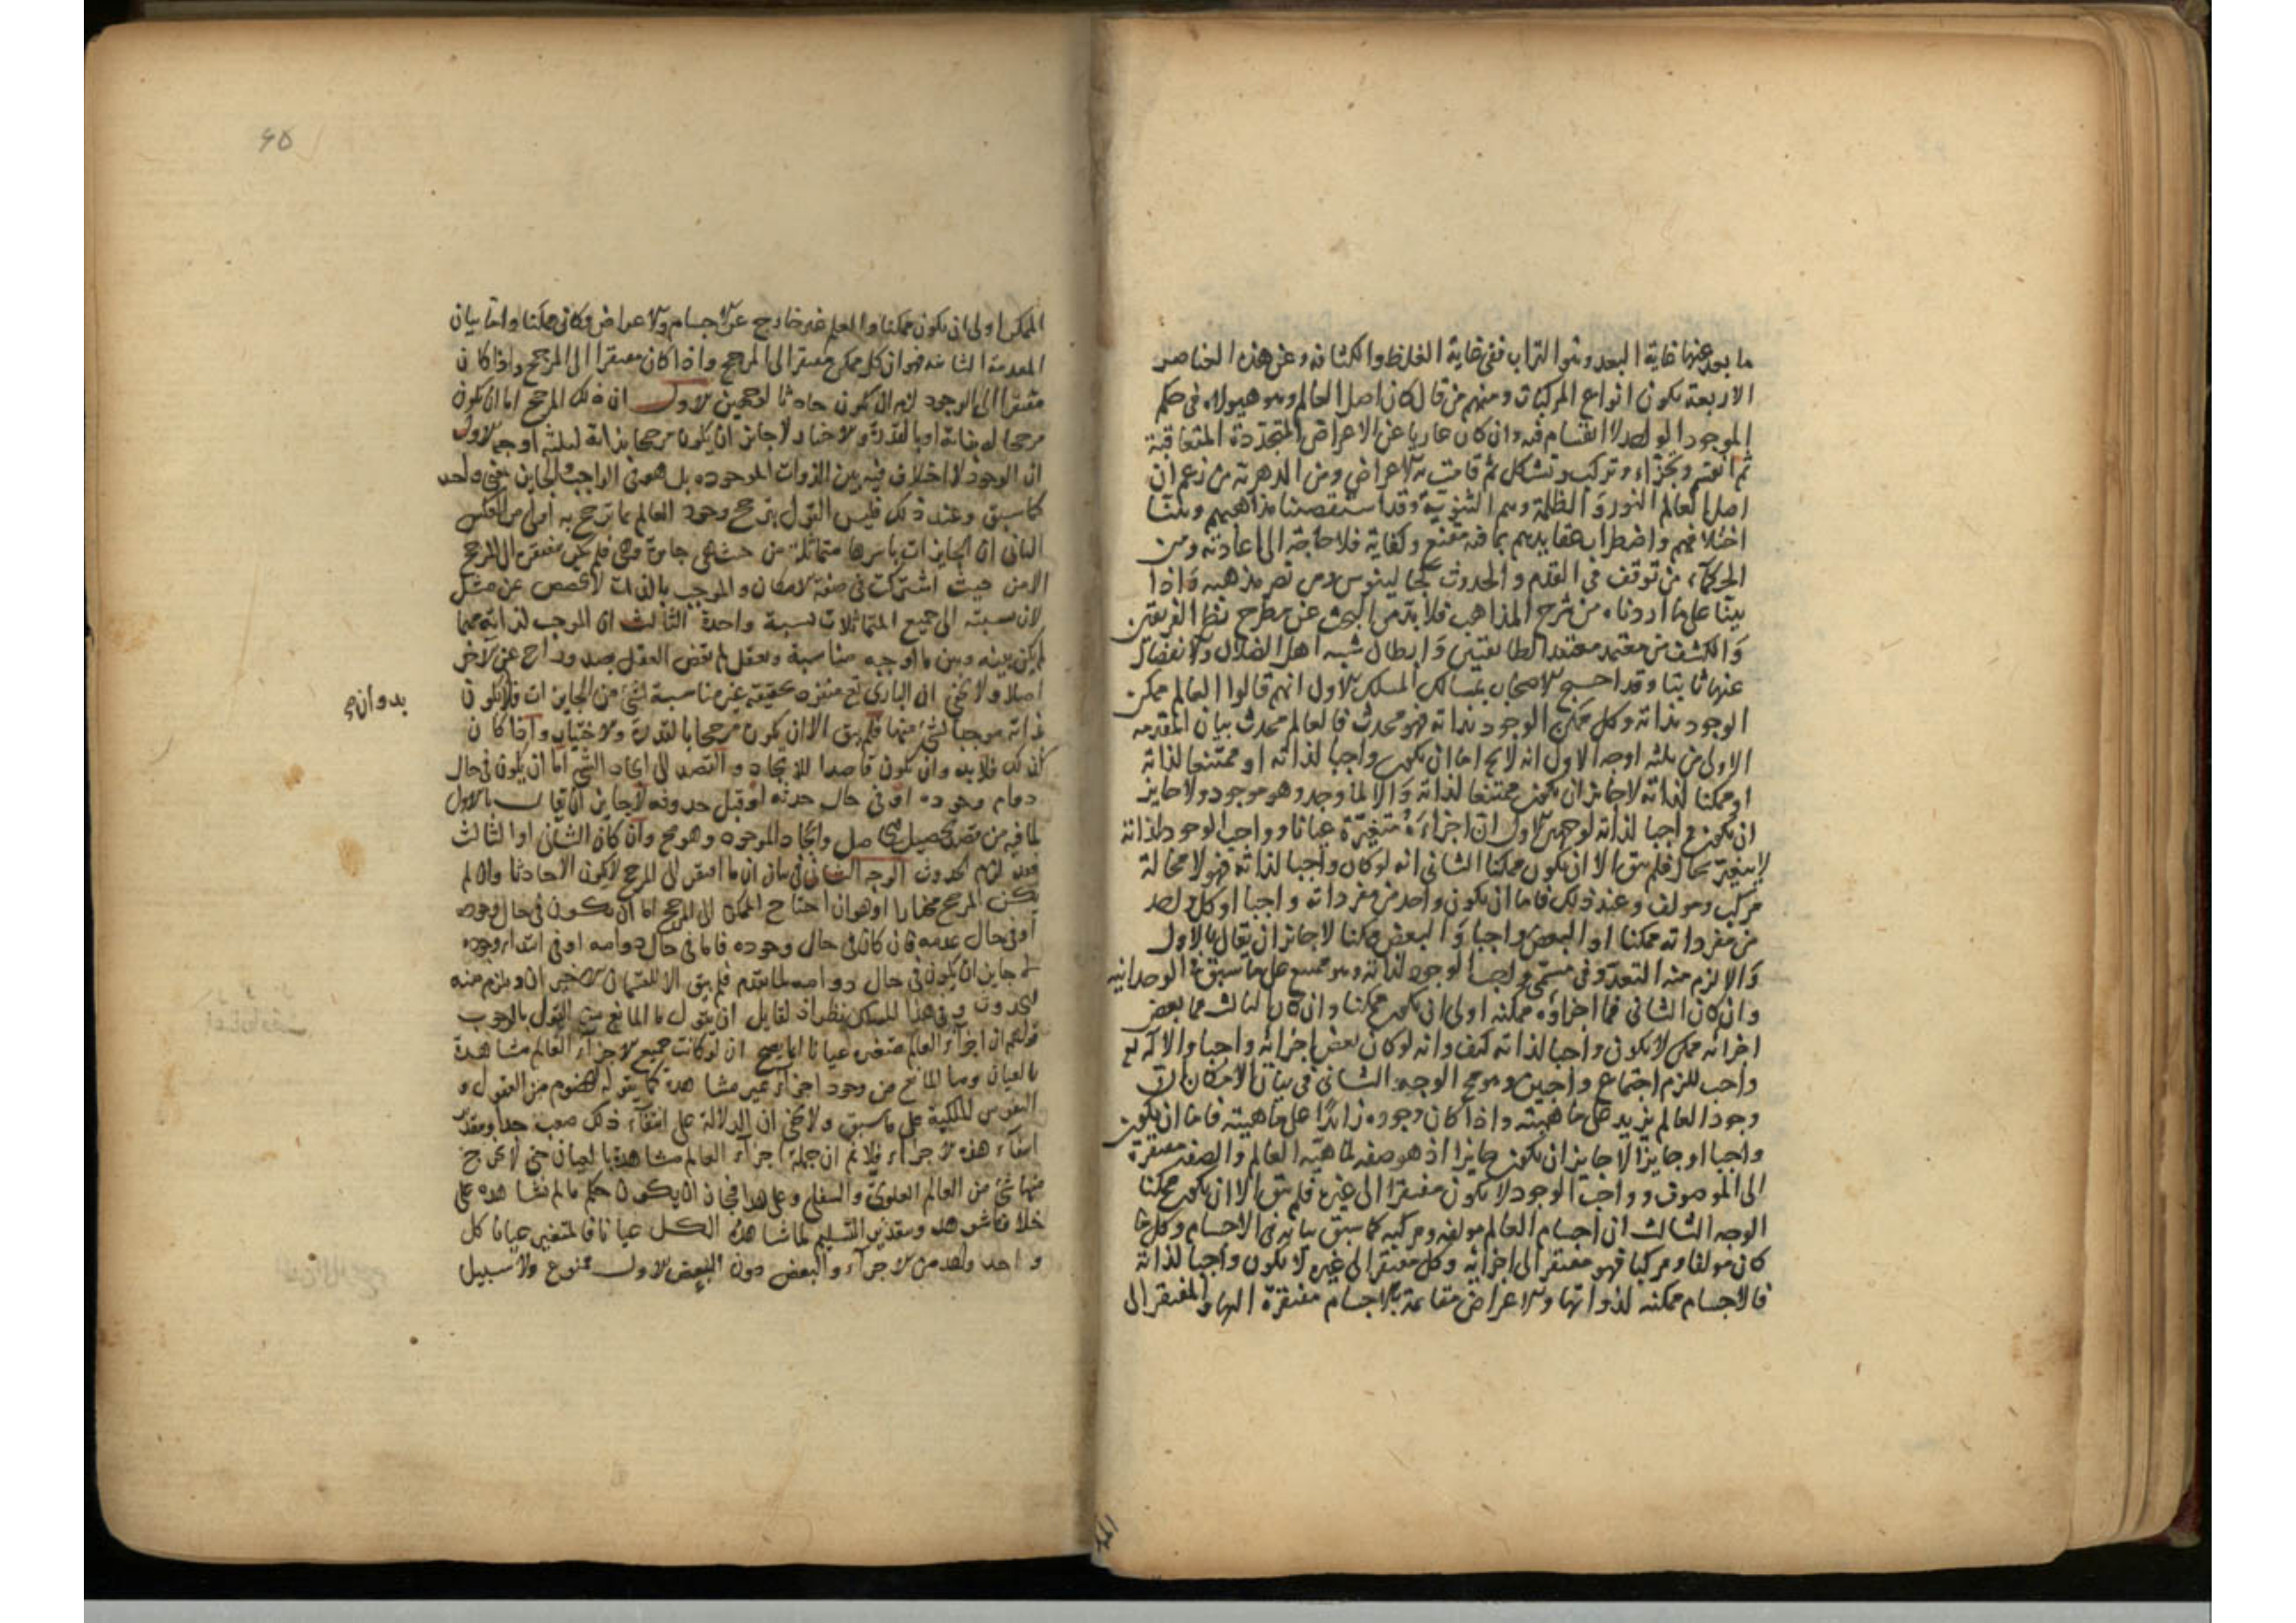 ما بعد عنها غاية البعد وهو التراب ففى غاية الغلظ والكثافه وعن هذه العناصر
الاربعة تكون انواع المركبات ومنهم من قال كان اصل العالم وهو هيولاه فى حكم
الموجود الواحد لا انقسام فيه وان كان عاريا عن الاعراض المتجددة المتعاقبة
ثم انقسم وتجزاء وتركب وتشكل ثم قامت به الاعراض ومن الدهرية من زعم ان
اصل العالم النور والظلمة وهم الثنوية وقد استقصينا مذاهبهم وبينا
اختلافهم واضطراب عقايدهم بما فيه مقنع وكفاية فلا حاجة الى اعادته ومن
الحكماء من توقف فى القدم والحدوث كجالينوس ومن نصر مذهبه واذا
بينا على ما اردناه من شرح المذاهب فلا بد من البحث عن مطرح نظر الفريقين
والكشف عن معتمد معتقد الطايفتين وابطال شبه اهل الضلال والانفصال
عنها ثانيا وقد احتج الاصحاب بمسالك المسلك الاول انهم قالوا العالم ممكن
الوجود بذاته وكل ممكن الوجود بذاته فهو محدث فالعالم محدث بيان المقدمه
الاولى من ثلثه اوجه الاول انه لا يخ اما ان يكون واجبا لذاته او ممتنعا لذاته
او ممكنا لذاته لا جايز ان يكون ممتنعا لذاته والا لما وجد وهو موجود ولا جايز
ان يكون واجبا لذاته لوجهين الاول ان اجزاءه متغيرة عيانا وواجب الوجود لذاته
لا يتغير بحال فلم يبق الا ان يكون ممكنا الثانى انه لو كان واجبا لذاته فهو لا محالة
مركب ومولف وعند ذلك فاما ان يكون واحد من مفرداته واجبا او كل واحد
من مفرداته ممكنا او البعض واجبا والبعض ممكنا لا جايز ان يقال بالاول
والا لزم منه التعدد فى مسمى واجب الوجود لذاته وهو ممتنع على ما سبق فى الوحدانيه
وان كان الثانى فما اجزاؤه ممكنه اولى ان يكون ممكنا وان كان الثالث فما بعض
اجزائه ممكن لا يكون واجبا لذاته كيف وانه لو كان بعض اجزائه واجبا والاله تع
واجب للزم اجتماع واجبين وهو مح الوجه الثانى فى بيان الامكان ان
وجود العالم يزيد على ماهيته واذا كان وجوده زايدا على ماهيته فاما ان يكون
واجبا او جايزا لا جايز ان يكون جايزا اذ هو صفه لماهية العالم والصفه مفتقرة
الى الموصوف وواجب الوجود لا يكون مفتقرا الى غيره فلم يبق الا ان يكون ممكنا
الوجه الثالث ان اجسام العالم مولفه ومركبه كما سبق بيانه فى الاجسام وكل ما
كان مولفا ومركبا فهو مفتقر الى اجزائه وكل مفتقر الى غيره لا يكون واجبا لذاته
فالاجسام ممكنه لذواتها والاعراض قائمة بالاجسام مفتقرة اليها والمفتقر الى
الممكن اولى ان يكون ممكنا والعالم غير خارج عن الاجسام والاعراض فكان ممكنا واما بيان
المقدمة الثانيه فهو ان كل ممكن مفتقر الى المرجح واذا كان مفتقرا الى المرجح واذا كان
مفتقرا الى الوجود لزم ان يكون حادثا لوجهين الاول ان ذلك المرجح اما ان يكون
مرجحا له بذاته او بالقدرة والاختيار لا جايز ان يكون مرجحا بذاته لثلثة اوجه الاول
ان الوجود لا اختلاف فيه بين الذوات الموجوده بل هو فى الواجب والجايز بمعنى واحد
كما سبق وعند ذلك فليس القول بترجح وجود العالم بما ترجح به اولى من العكس
الثانى ان الجايزات باسرها متماثلة من حيث هى جايزة وهى فلم تكن مفتقرة الى المرجح
الا من حيث اشتركت فى صفة الامكان والموجب بالذات لا يخصص عن مثل
لان نسبته الى جميع المتماثلات نسبة واحدة الثالث ان الموجب لذاته مهما
لم يكن بينه وبين ما اوجبه مناسبة وتعلق لم يقض العقل بصدور احد عن الاخر
اصلا ولا يخفى ان البارى تع منزه بحقيقته غير مناسبة لشئ من الجايزات فلا يكون
ذاته موجبا لشئ منها فلم يبق الا ان يكون مرجحا بالقدرة والاختيار واذا كان
كذلك فلا بد وان يكون قاصدا للايجاد والقصد الى ايجاد الشئ اما ان يكون فى حال
دوام وجوده او فى حال حدثه او قبل حدوثه لا جايز ان يقال بالاول
لما فيه من قصد تحصيل الحاصل وايجاد الموجود وهو مح وان كان الثانى او الثالث
فقد لزم الحدوث الوجه الثانى فى بيان ان ما افتقر الى المرجح لا يكون الا حادثا وان لم
يكن المرجح مختارا وهو ان احتاج الممكن الى المرجح اما ان يكون فى حال وجوده
او فى حال عدمه فان كان فى حال وجوده فاما فى حال دوامه او فى ابتداء وجوده
لا جايز ان يكون فى حال دوامه لما تقدم فلم يبق الا القسمان الاخيران ويلزم منه
الحدوث وفى هذا المسلك نظر اذ لقايل ان يقول ما المانع من القول بالوجب
قولهم ان اجزاء العالم متغيره عيانا انما يصح ان لو كانت جميع الاجزاء العالم مشاهدة
بالعيان وما المانع من وجود اجزاء غير مشاهدة كما يقوله الخصوم من العقول و
النفوس الملكية على ما سبق ولا يخفى ان الدلالة على انتفاء ذلك صعب جدا وبتقدير
انتفاء هذه الاجزاء فلا نم ان جملة اجزاء العالم مشاهدة بالعيان حتى لا يخرج
منها شئ من العالم العلوى والسفلى وعلى هذا فجاز ان يكون حكم ما لم نشاهده على
خلاف ما شوهد وبتقدير التسليم لمشاهدة الكل عيانا فالمتغير عيانا كل
واحد واحد من الاجزاء والبعض دون البعض الاول ممنوع ولا سبيل